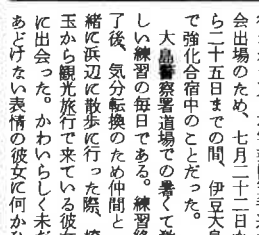 会出場のため、七月二十二日か
ら二十五日までの間、伊豆大島
で強化合宿中のことだった。
大島警察署道場での暑くて激
しい練習の毎日である。練習終
了後、気分転換のため仲間と
緒に浜辺に散歩に行った際、埼
玉から観光旅行で来ている彼女
に出会った。かわいらしく未だ
あどけない表情の彼女に何かひ